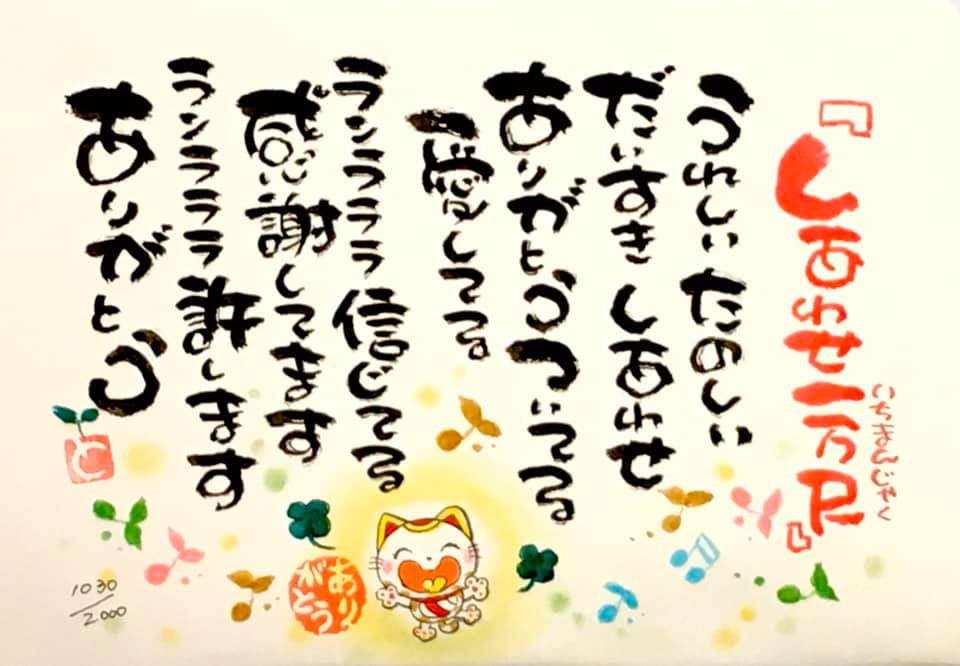 『しあわせ一万尺』
いちまんじゃく
うれしい たのしい
だいすき しあわせ
ありがとう ついてる
愛してる
ランラララ 信じてる
感謝してます
ランラララ 許します
ありがとう
と
ありがとう
1030/2.000